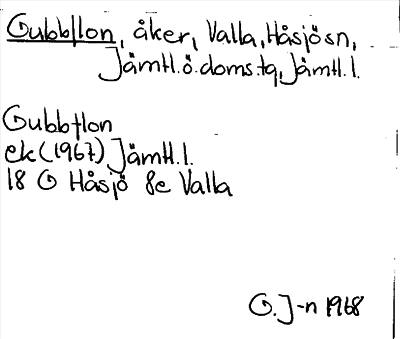 Gubbflon, åker, Valla, Håsjösn,
Jämtl.ö.doms.tg, Jämtl.l.
Gubbflon
ek (1967) Jämtl.l.
18 G Håsjö 8e Valla
G.J-n 1968